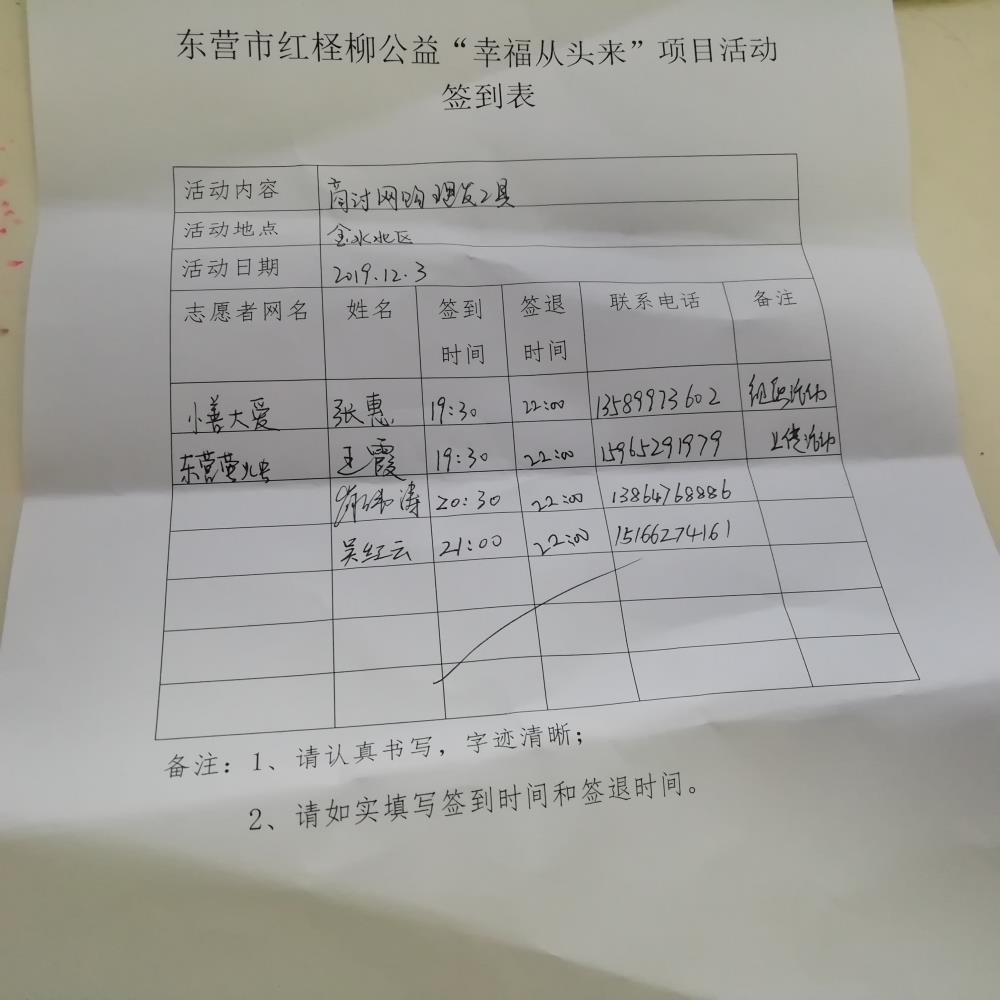 东营市红柽柳公益“幸福从头来”项目活动
签到表
活动内容 商讨网购理发工具
活动地点 金水北区
活动日期 2019.12.3
志愿者网名 姓名 签到时间 签退时间 联系电话 备注
小善大爱 张惠 19:30 22:00 13589973602 组织活动
东营萤火虫 王霞 19:30 22:00 15965291979 上传活动
涛 20:30 22:00 13864768886
吴红云 21:00 22:00 15166274161
备注：1、请认真书写，字迹清晰；
2、请如实填写签到时间和签退时间。